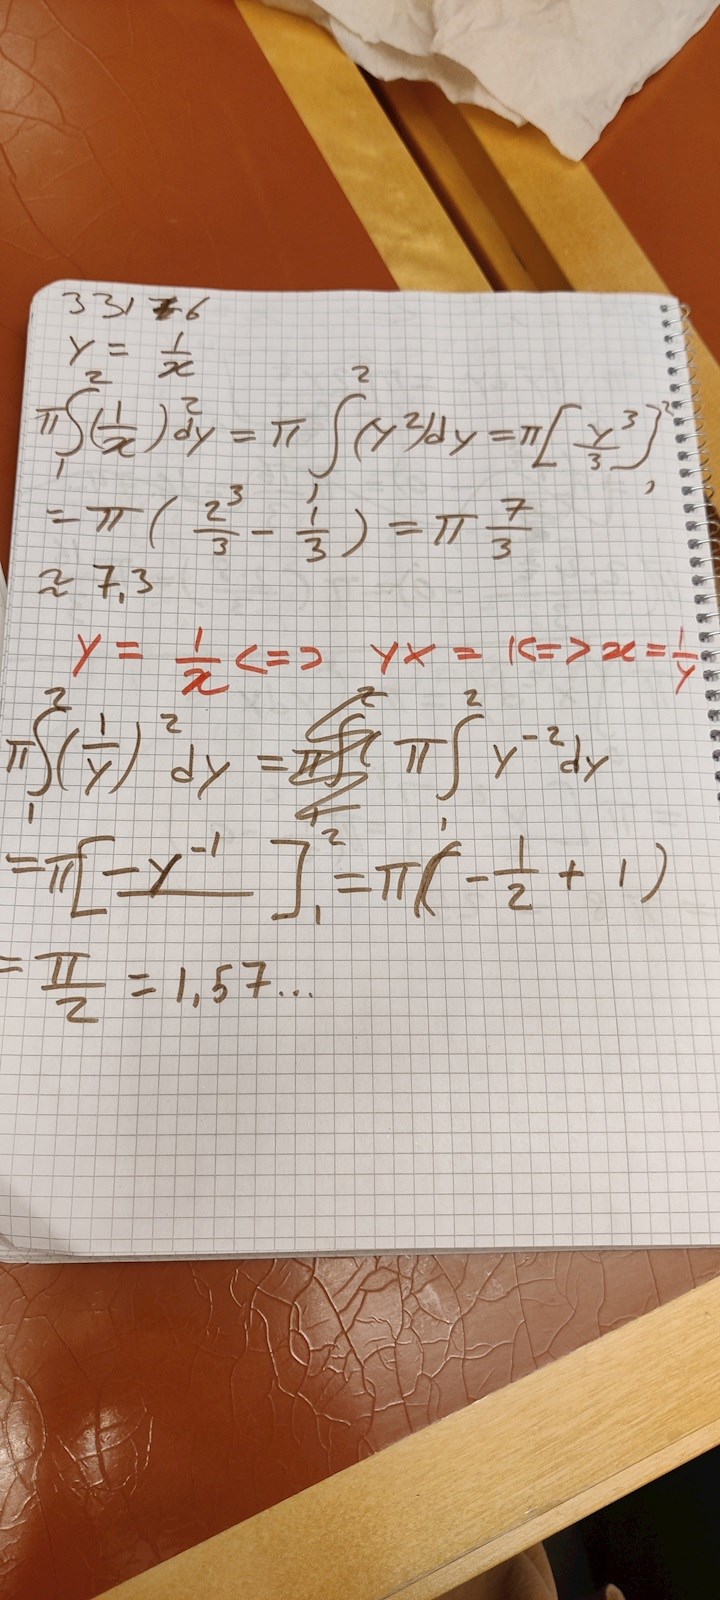 3317-6
y = 1/x
π∫₁²(1/x)²dy = π∫₁²(y²)dy = π[y³/3]₁²
= π(2³/3 - 1/3) = π 7/3
≈ 7,3
y = 1/x <=> yx = 1 <=> x = 1/y
π∫₁²(1/y)²dy = π∫₁² y⁻²dy
= π[-y⁻¹]₁² = π(-1/2 + 1)
= π/2 = 1,57...